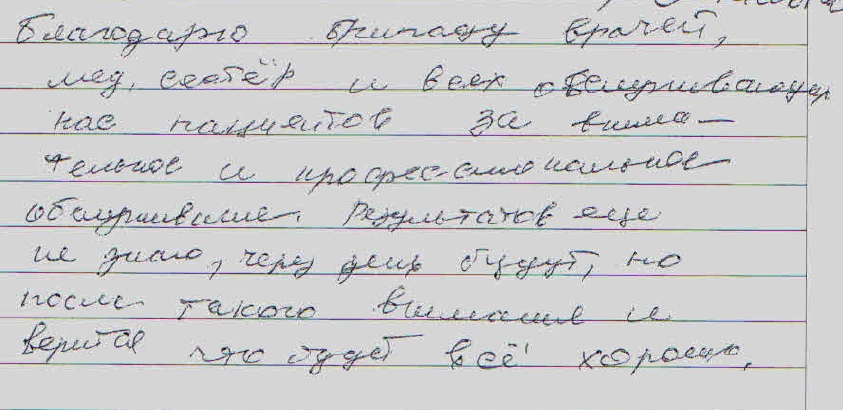 Благодарю бригаду врачей,
мед. сестёр и всех обслуживающих
нас пациентов за внима-
тельное и профессиональное
обслуживание. Результатов еще
не знаю, через день будут, но
после такого внимания и
верится что будет всё хорошо.